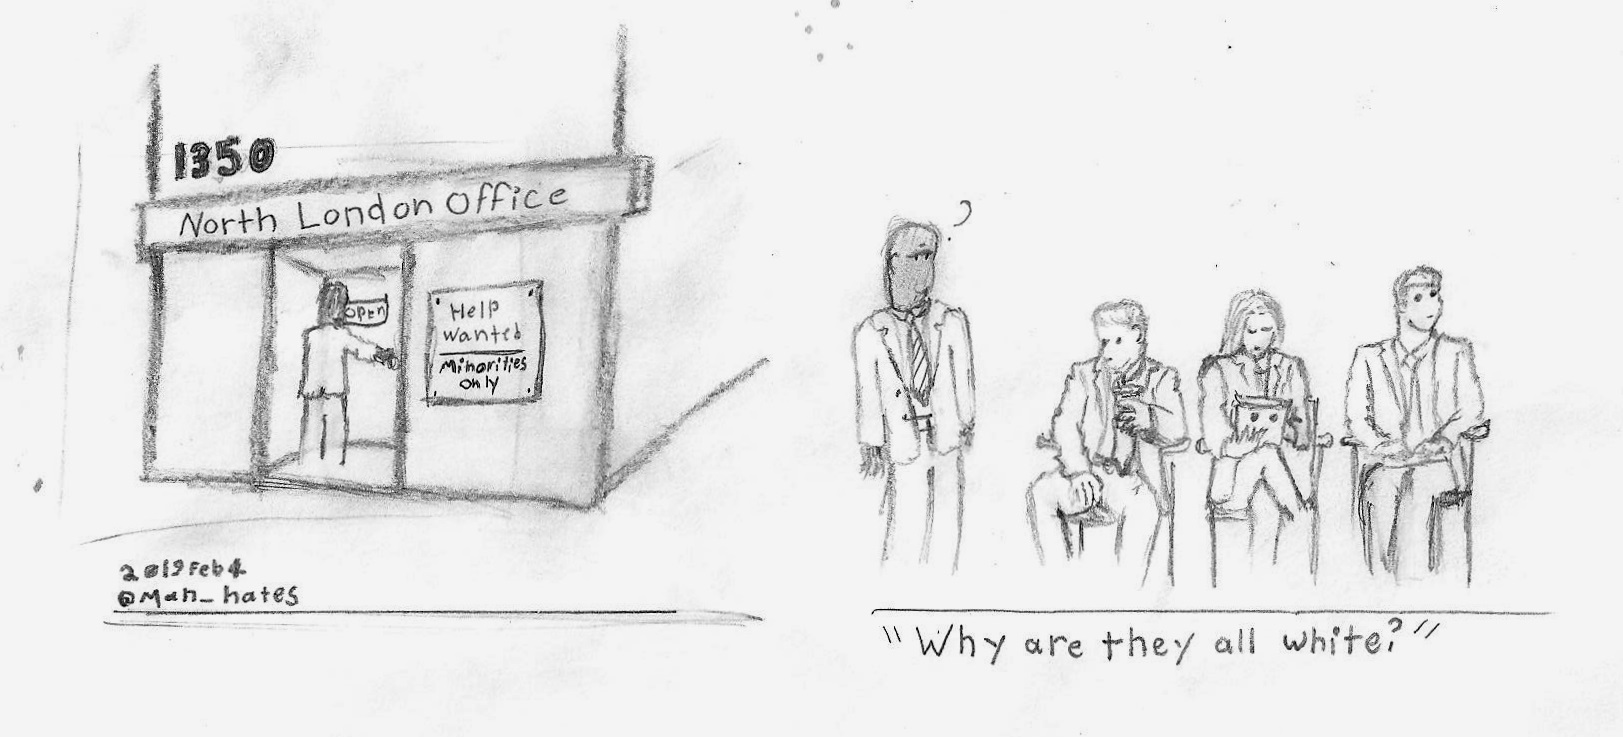 1350
North London Office
OPEn
Help
Wanted
Minorities
only
2019 Feb 4
@Man_hates
?
"Why are they all white?"